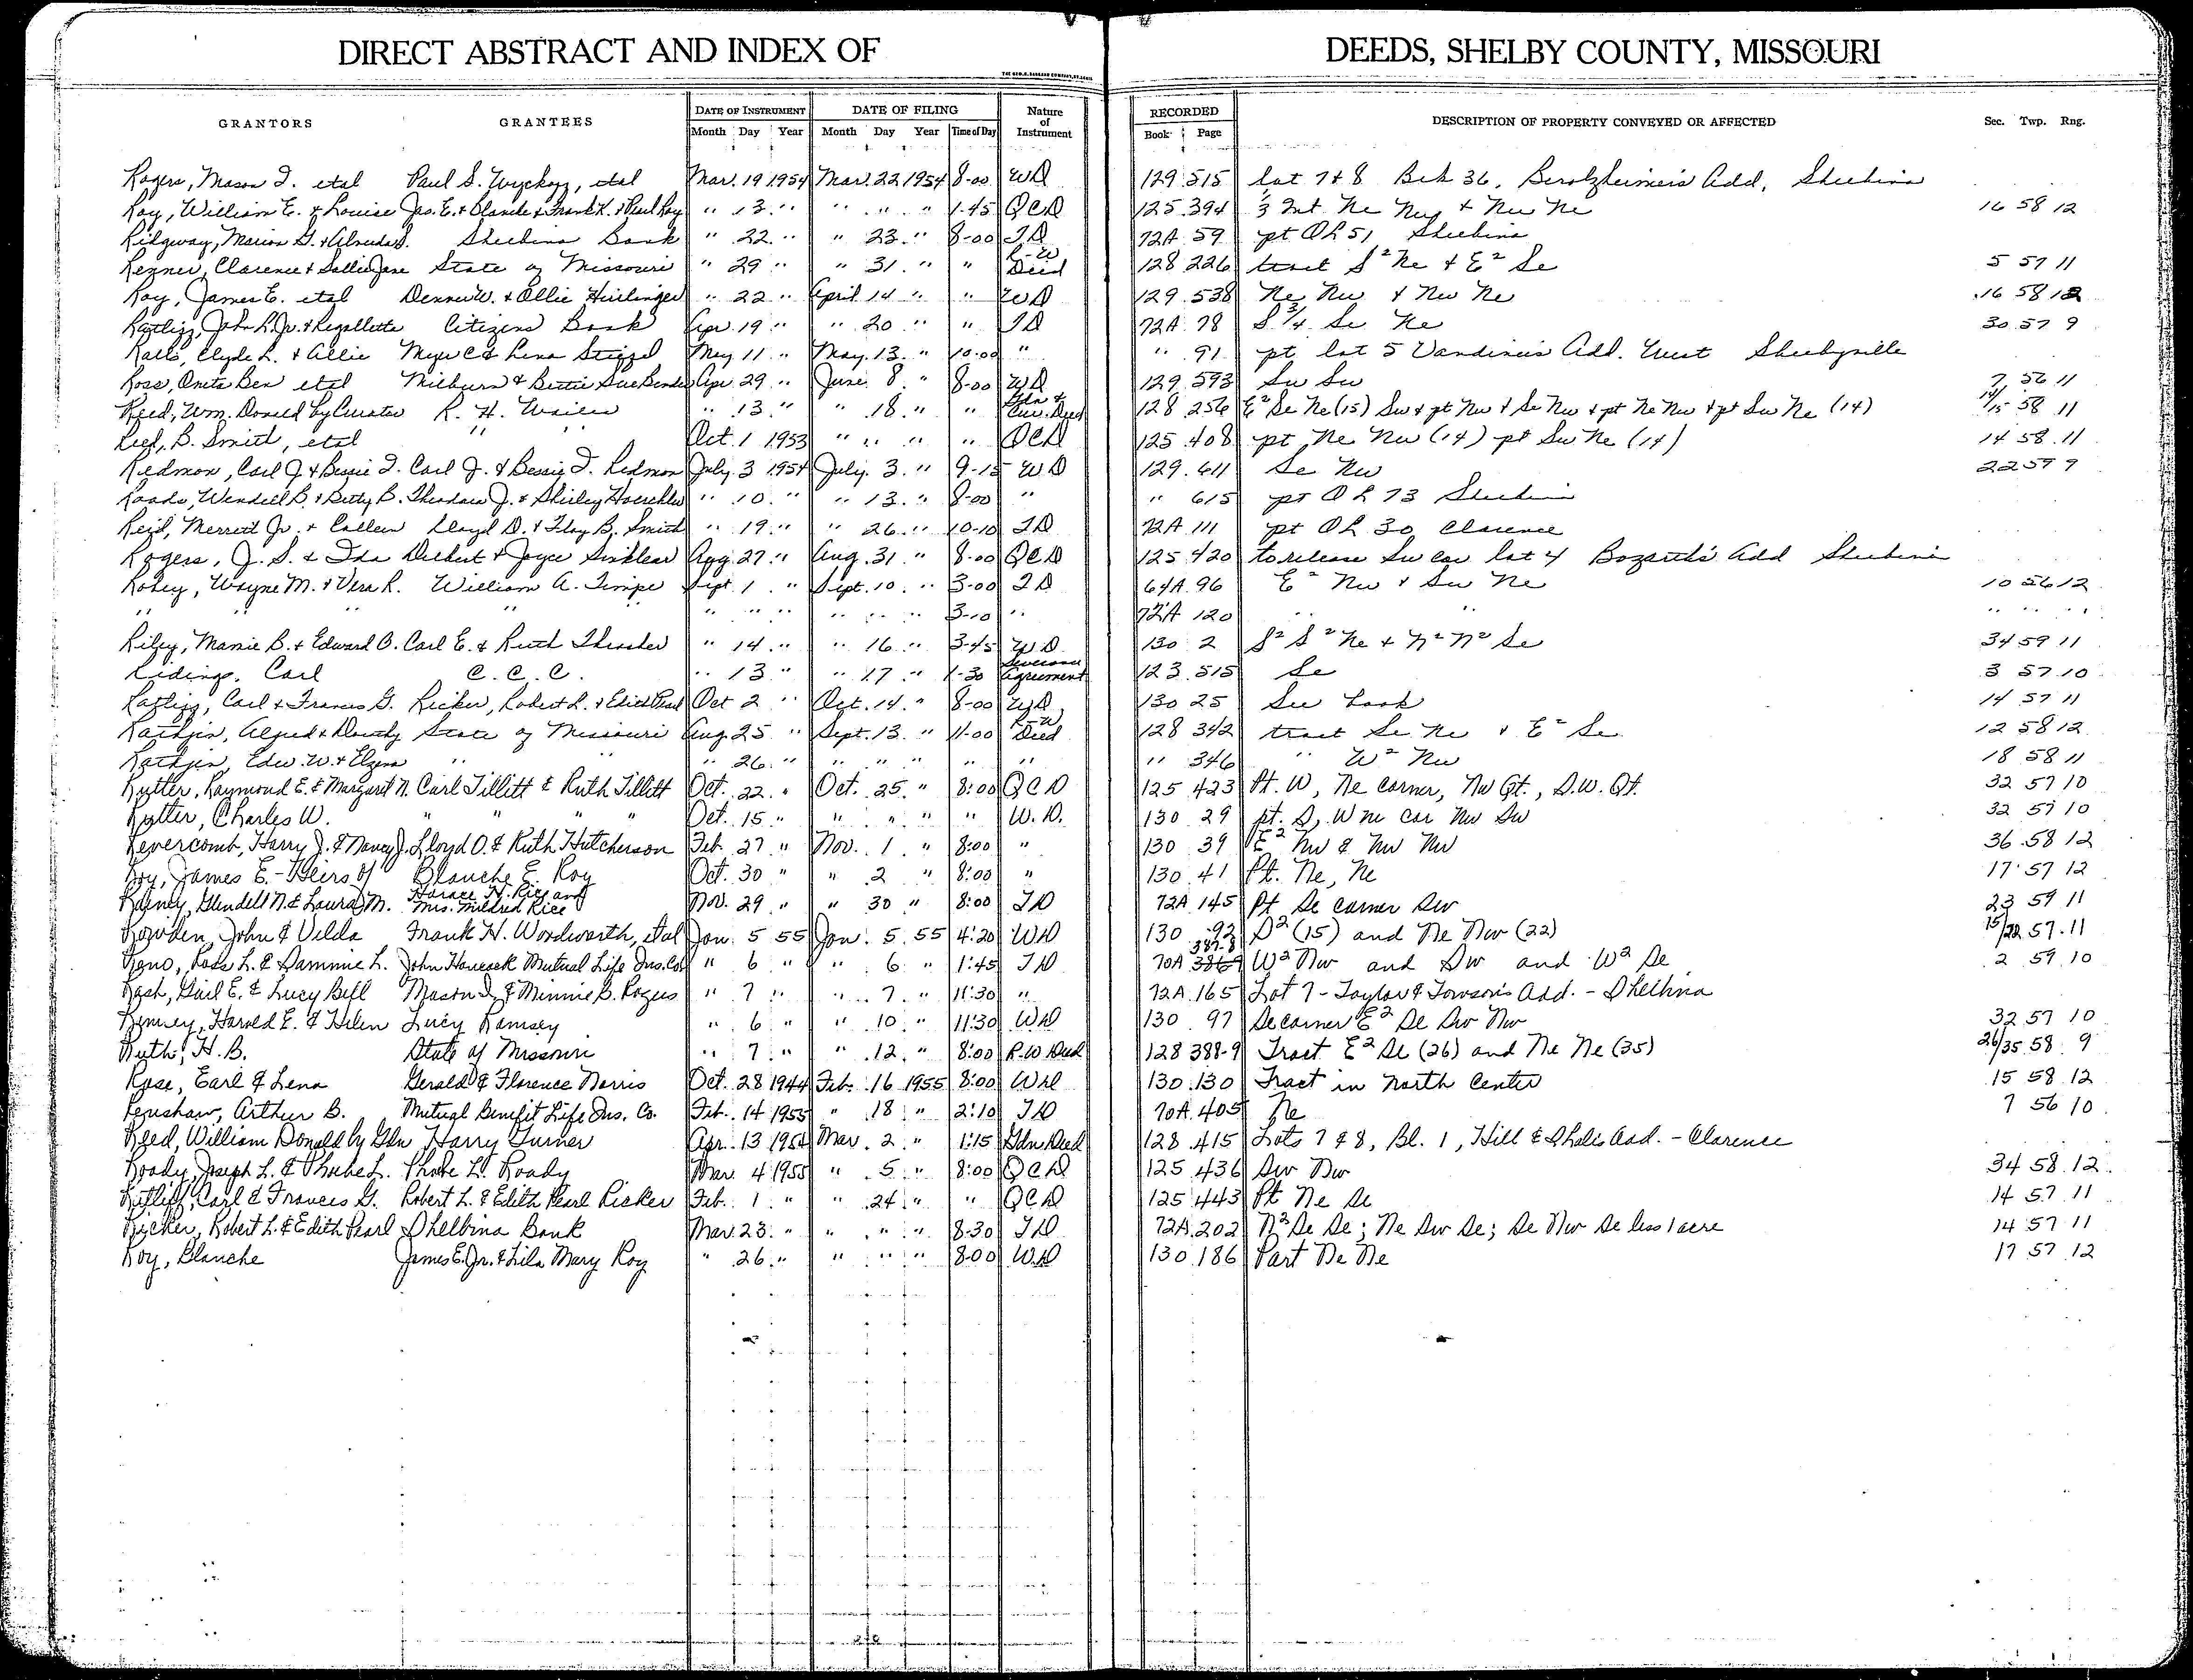 DIRECT ABSTRACT AND INDEX OF DEEDS, SHELBY COUNTY, MISSOURI
GRANTORS GRANTEES DATE OF INSTRUMENT DATE OF FILING Nature of Instrument RECORDED DESCRIPTION OF PROPERTY CONVEYED OR AFFECTED Sec. Twp. Rng.
Month Day Year Month Day Year Time of Day Book Page
Rogers, Mason I. etal Paul S. Wyckoff, etal Mar. 19 1954 Mar. 22 1954 8-00 WD 129 515 Lot 7 & 8 Blk 36, Berolzheimer's Add, Shelbina
Roy, William E. & Louise Jas. E. & Blanche & Frank K. & Pearl Roy " 13 " " " " 1-45 QCD 125 394 1/3 Int Ne Nw & Nw Ne 16 58 12
Ridgway, Marion G. & Shelbina Bank " 22 " " 23 " 8-00 TD 72A 59 pt OL 51 Shelbina
Rezner, Clarence & Sallie Jane State of Missouri " 29 " " 31 " " R-W Deed 128 226 tract S² Ne & E² Se 5 57 11
Roy, James E. etal Denver W. & Ollie Hirlinger " 22 " April 14 " " WD 129 538 Ne Nw & Nw Ne 16 58 12
Ratliff, John L. Jr. & Citizens Bank Apr. 19 " " 20 " " TD 72A 78 S 3/4 Se Ne 30 57 9
Ralls, Clyde L. & Allie & Lena Stizzel May 11 " May 13 " 10-00 " " 91 pt lot 5 Add. West Shelbyville
Ross, Oneta Bea etal Milburn & Bettie Sue Bender Apr. 29 " June 8 " 8-00 WD 129 593 Sw Sw 7 56 11
Reed, Wm. Donald by Curator R. H. Wailes " 13 " " 18 " " Gdn & Cur. Deed 128 256 E² Se Ne (15) Sw & pt Nw & Se Nw & pt Ne Nw & pt Sw Ne (14) 14/15 58 11
Reed, B. Smith, etal " " Oct. 1 1953 " " " " QCD 125 408 pt Ne Nw (14) pt Sw Ne (14) 14 58 11
Redmon, Carl J. & Bessie I. Carl J. & Bessie I. Redmon July 3 1954 July 3 " 9-15 WD 129 611 Se Nw 22 59 9
Roads, Wendell B. & Betty B. Theodore J. & Shirley " 10 " " 13 " 8-00 " " 615 pt OL 73 Shelbina
Reid, Merrett Jr. & Colleen Lloyd D. & Floy B. Smith " 19 " " 26 " 10-10 TD 72A 111 pt OL 30 Clarence
Rogers, J. S. & Ida Delbert & Joyce Sinklear Aug. 27 " Aug. 31 " 8-00 QCD 125 420 to release Sw cor lot 4 Bozarth's Add Shelbina
Robey, Wayne M. & Vera R. William A. Timpe Sept 1 " Sept. 10 " 3-00 TD 64A 96 E² Nw & Sw Ne 10 56 12
" " " " " " " " " " " 3-10 " 72A 120 " " " " "
Riley, Mamie B. & Edward O. Carl E. & Ruth Thrasher " 14 " " 16 " 3-45 WD 130 2 S² S² Ne & N² N² Se 34 59 11
Ridings, Carl C. C. C. " 13 " " 17 " 1-30 Severance Agreement 123 515 Se 3 57 10
Ratliff, Carl & Frances G. Ricker, Robert L. & Edith Pearl Oct 2 " Oct. 14 " 8-00 WD 130 25 See book 14 57 11
Rathjen, Alfred & Dorothy State of Missouri Aug. 25 " Sept. 13 " 11-00 R-W Deed 128 342 tract Se Ne & E² Se 12 58 12
Rathjen, Edw. W. & Elzena " " " 26 " " " " " " " 346 " W² Nw 18 58 11
Rutter, Raymond E. & Margaret N. Carl Tillitt & Ruth Tillitt Oct. 22 " Oct. 25 " 8:00 QCD 125 423 Pt. W, Ne corner, Nw Qt., S.W. Qt. 32 57 10
Rutter, Charles W. " " " " Oct. 15 " " " " " W.D. 130 29 pt. S, W ne cor Nw Sw 32 57 10
Revercomb, Harry J. & Nancy J. Lloyd O. & Ruth Hutcherson Feb. 27 " Nov. 1 " 8:00 " 130 39 E² Nw & Nw Nw 36 58 12
Roy, James E. - Heirs of Blanche E. Roy Oct. 30 " " 2 " 8:00 " 130 41 Pt. Ne, Ne 17 57 12
Rainey, Glendell N. & Laura M. Horace N. Rice and Mrs. Mildred Rice Nov. 29 " " 30 " 8:00 TD 72A 145 Pt Se corner Sw 23 59 11
Rowden, John & Velda Frank H. Wordworth, etal Jan. 5 55 Jan. 5 55 4:20 WD 130 92 S² (15) and Ne Nw (22) 15/22 57 11
Reno, Ross L. & Sammie L. John Hancock Mutual Life Ins. Co. " 6 " " 6 " 1:45 TD 70A 387-8 W² Nw and Sw and W² Se 2 59 10
Rash, Gail E. & Lucy Bell Mason I. & Minnie B. Rogers " 7 " " 7 " 11:30 " 72A 165 Lot 7 - Taylor & Towson's Add. - Shelbina
Ramsey, Harold E. & Helen Lucy Ramsey " 6 " " 10 " 11:30 WD 130 97 Se corner E² Se Sw Nw 32 57 10
Ruth, H. B. State of Missouri " 7 " " 12 " 8:00 R.W Deed 128 388-9 Tract E² Se (26) and Ne Ne (35) 26/35 58 9
Rose, Earl & Lena Gerald & Florence Norris Oct. 28 1944 Feb. 16 1955 8:00 WD 130 130 Tract in North Center 15 58 12
Renshaw, Arthur B. Mutual Benefit Life Ins. Co. Feb. 14 1955 " 18 " 2:10 TD 70A 405 Ne 7 56 10
Reed, William Donald by Gdn Harry Turner Apr. 13 1954 Mar. 2 " 1:15 Gdn Deed 128 415 Lots 7 & 8, Bl. 1, Hill & Add. - Clarence
Roady, Joseph L. & Phoebe L. Phoebe L. Roady Mar. 4 1955 " 5 " 8:00 QCD 125 436 Sw Nw 34 58 12
Ratliff, Carl & Frances G. Robert L. & Edith Pearl Ricker Feb. 1 " " 24 " " QCD 125 443 Pt Ne Se 14 57 11
Ricker, Robert L. & Edith Pearl Shelbina Bank Mar. 23 " " " " 8-30 TD 72A 202 N² Se Se; Ne Sw Se; Se Nw Se less 1 acre 14 57 11
Roy, Blanche James E. Jr. & Lila Mary Roy " 26 " " " " 8-00 WD 130 186 Part Ne Ne 17 57 12